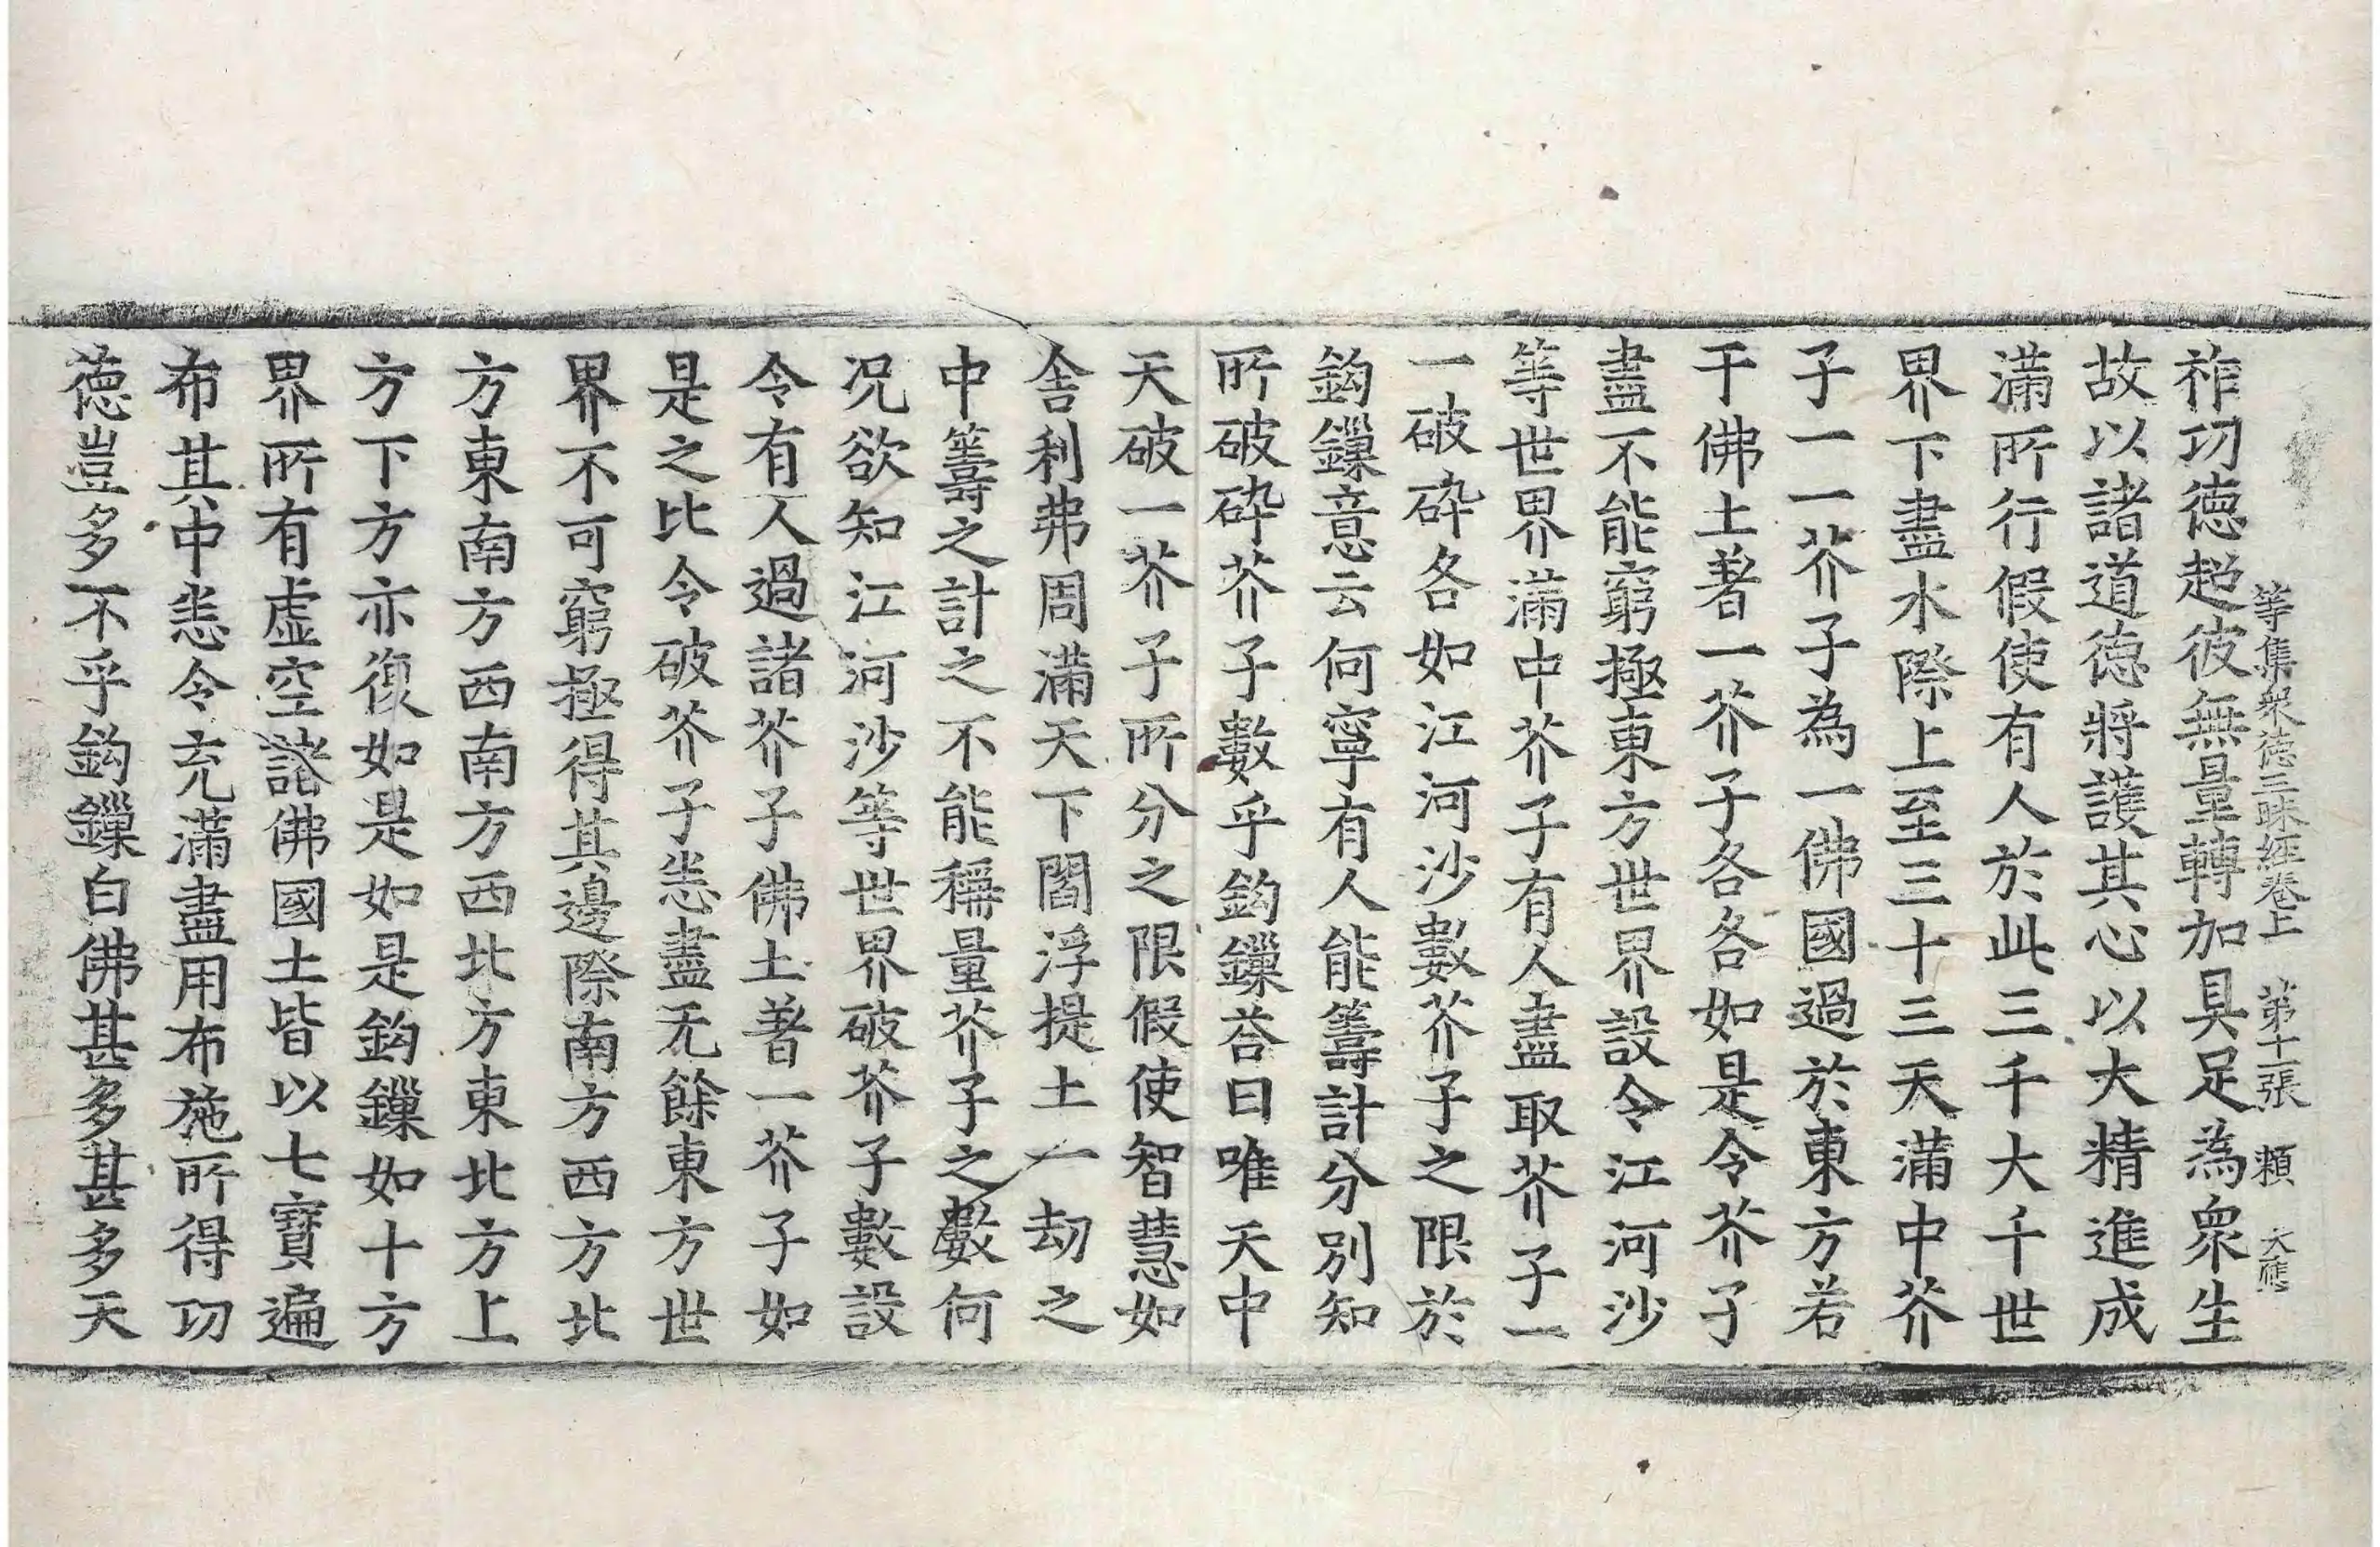 等集衆德三昧經卷上 第十二張 頼 大應
祚功德超彼無量轉加具足為衆生
故以諸道德將護其心以大精進成
滿所行假使有人於此三千大千世
界下盡水際上至三十三天滿中芥
子一一芥子為一佛國過於東方若
干佛土著一芥子各各如是令芥子
盡不能窮極東方世界設令江河沙
等世界滿中芥子有人盡取芥子一
一破碎各如江河沙數芥子之限於
鈎鏁意云何寧有人能籌計分別知
所破碎芥子數乎鈎鏁荅曰唯天中
天破一芥子所分之限假使智慧如
舍利弗周滿天下閻浮提土一劫之
中籌之計之不能稱量芥子之數何
况欲知江河沙等世界破芥子數設
令有人過諸芥子佛土著一芥子如
是之比令破芥子悉盡无餘東方世
界不可窮極得其邊際南方西方北
方東南方西南方西北方東北方上
方下方亦復如是如是鈎鏁如十方
界所有虛空諸佛國土皆以七寶遍
布其中悉令充滿盡用布施所得功
德豈多不乎鈎鏁白佛甚多甚多天